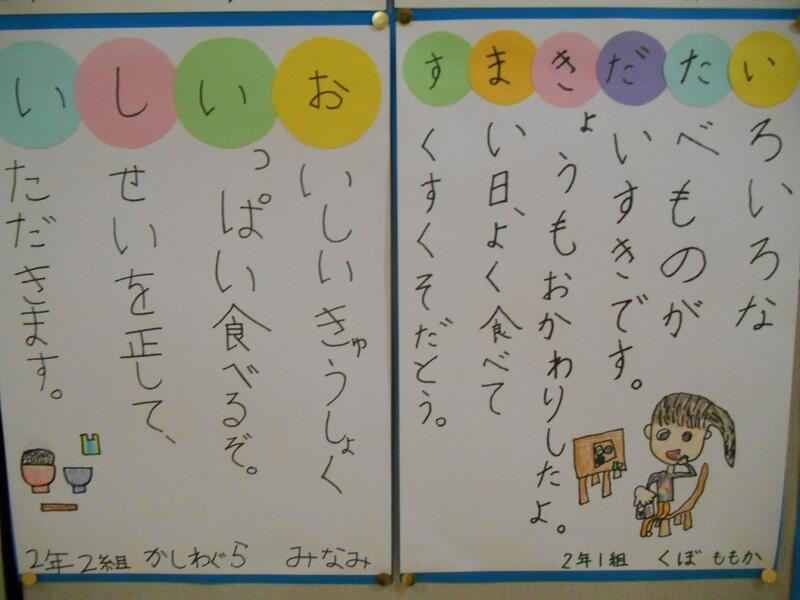 いろいろな
たべものが
だいすきです。
きょうもおかわりしたよ。
まい日、よく食べて
すくすくそだとう。
2年1組 くぼ ももか
おいしいきゅうしょく
いっぱい食べるぞ。
しせいを正して、
いただきます。
2年2組 かしわぐら みなみ